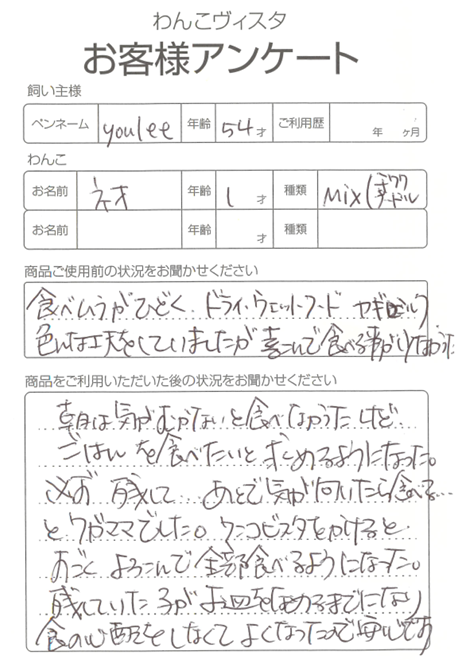 わんこヴィスタ
お客様アンケート
飼い主様
ペンネーム youlee 年齢 54才 ご利用歴 年 ヶ月
わんこ
お名前 年齢 1才 種類 Mix(チワワ
お名前 年齢 才 種類
商品ご使用前の状況をお聞かせください
食べムラがひどく ドライ・ウェットフード ヤギミルク
色んな工夫をしていましたが 喜こんで食べる事がなかった
商品をご利用いただいた後の状況をお聞かせください
朝は気がむかないと食べなかったけど
ごはんを食べたいと求めるようになった。
必ず 残して あとで気が向いたら食べる…
とワガママでした。ワンコビスタをかけると
すごく よろこんで全部食べるようになった。
残していた子がお皿をなめるまでになり
食の心配をしなくてよくなったので安心です